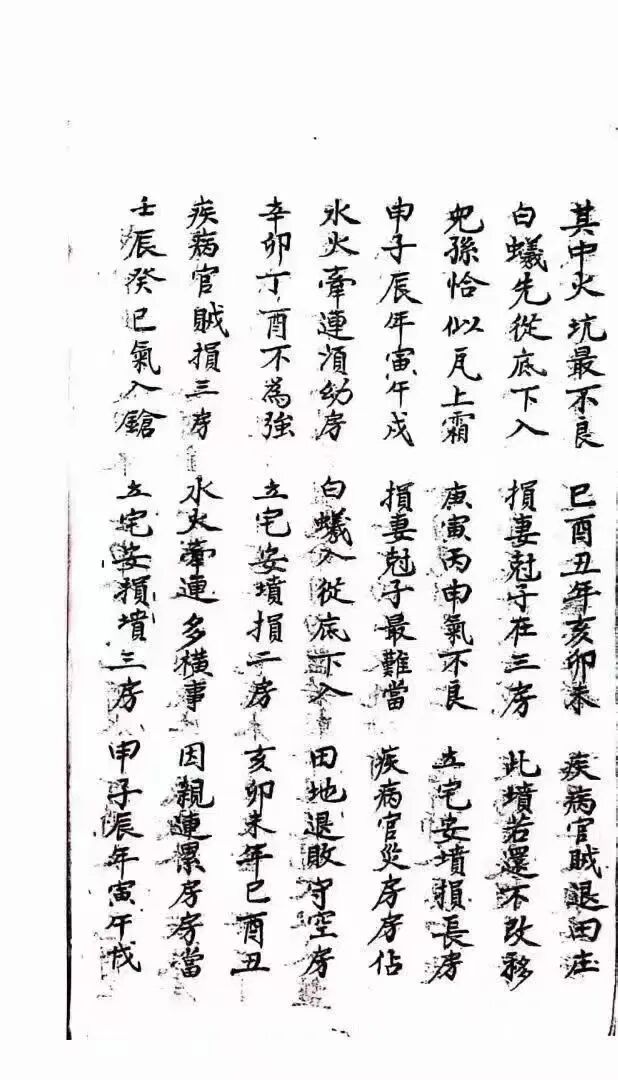 其中火坑最不良 巳酉丑年亥卯未 疾病官賊退田庄
白蟻先從底下入 損妻尅子在三房 此墳若還不改移
兒孫恰似瓦上霜 庚寅丙申氣不良 立宅安墳損長房
申子辰年寅午戌 損妻尅子最難當 疾病官災房房佔
水火牽連湏幼房 白蟻入從底下入 田地退敗守空房
辛卯丁酉不為強 立宅安墳損二房 亥卯未年巳酉丑
疾病官賊損三房 水火牽連多橫事 因親連累房房當
壬辰癸巳氣入鎗 立宅安損墳三房 申子辰年寅午戌